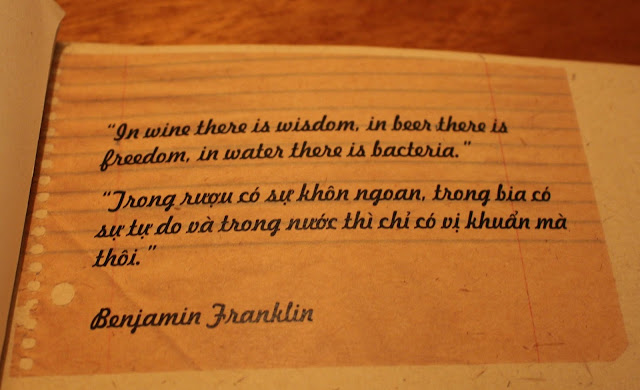 “In wine there is wisdom, in beer there is
freedom, in water there is bacteria.”
“Trong rượu có sự khôn ngoan, trong bia có
sự tự do và trong nước thì chỉ có vị khuẩn mà
thôi.”
Benjamin Franklin